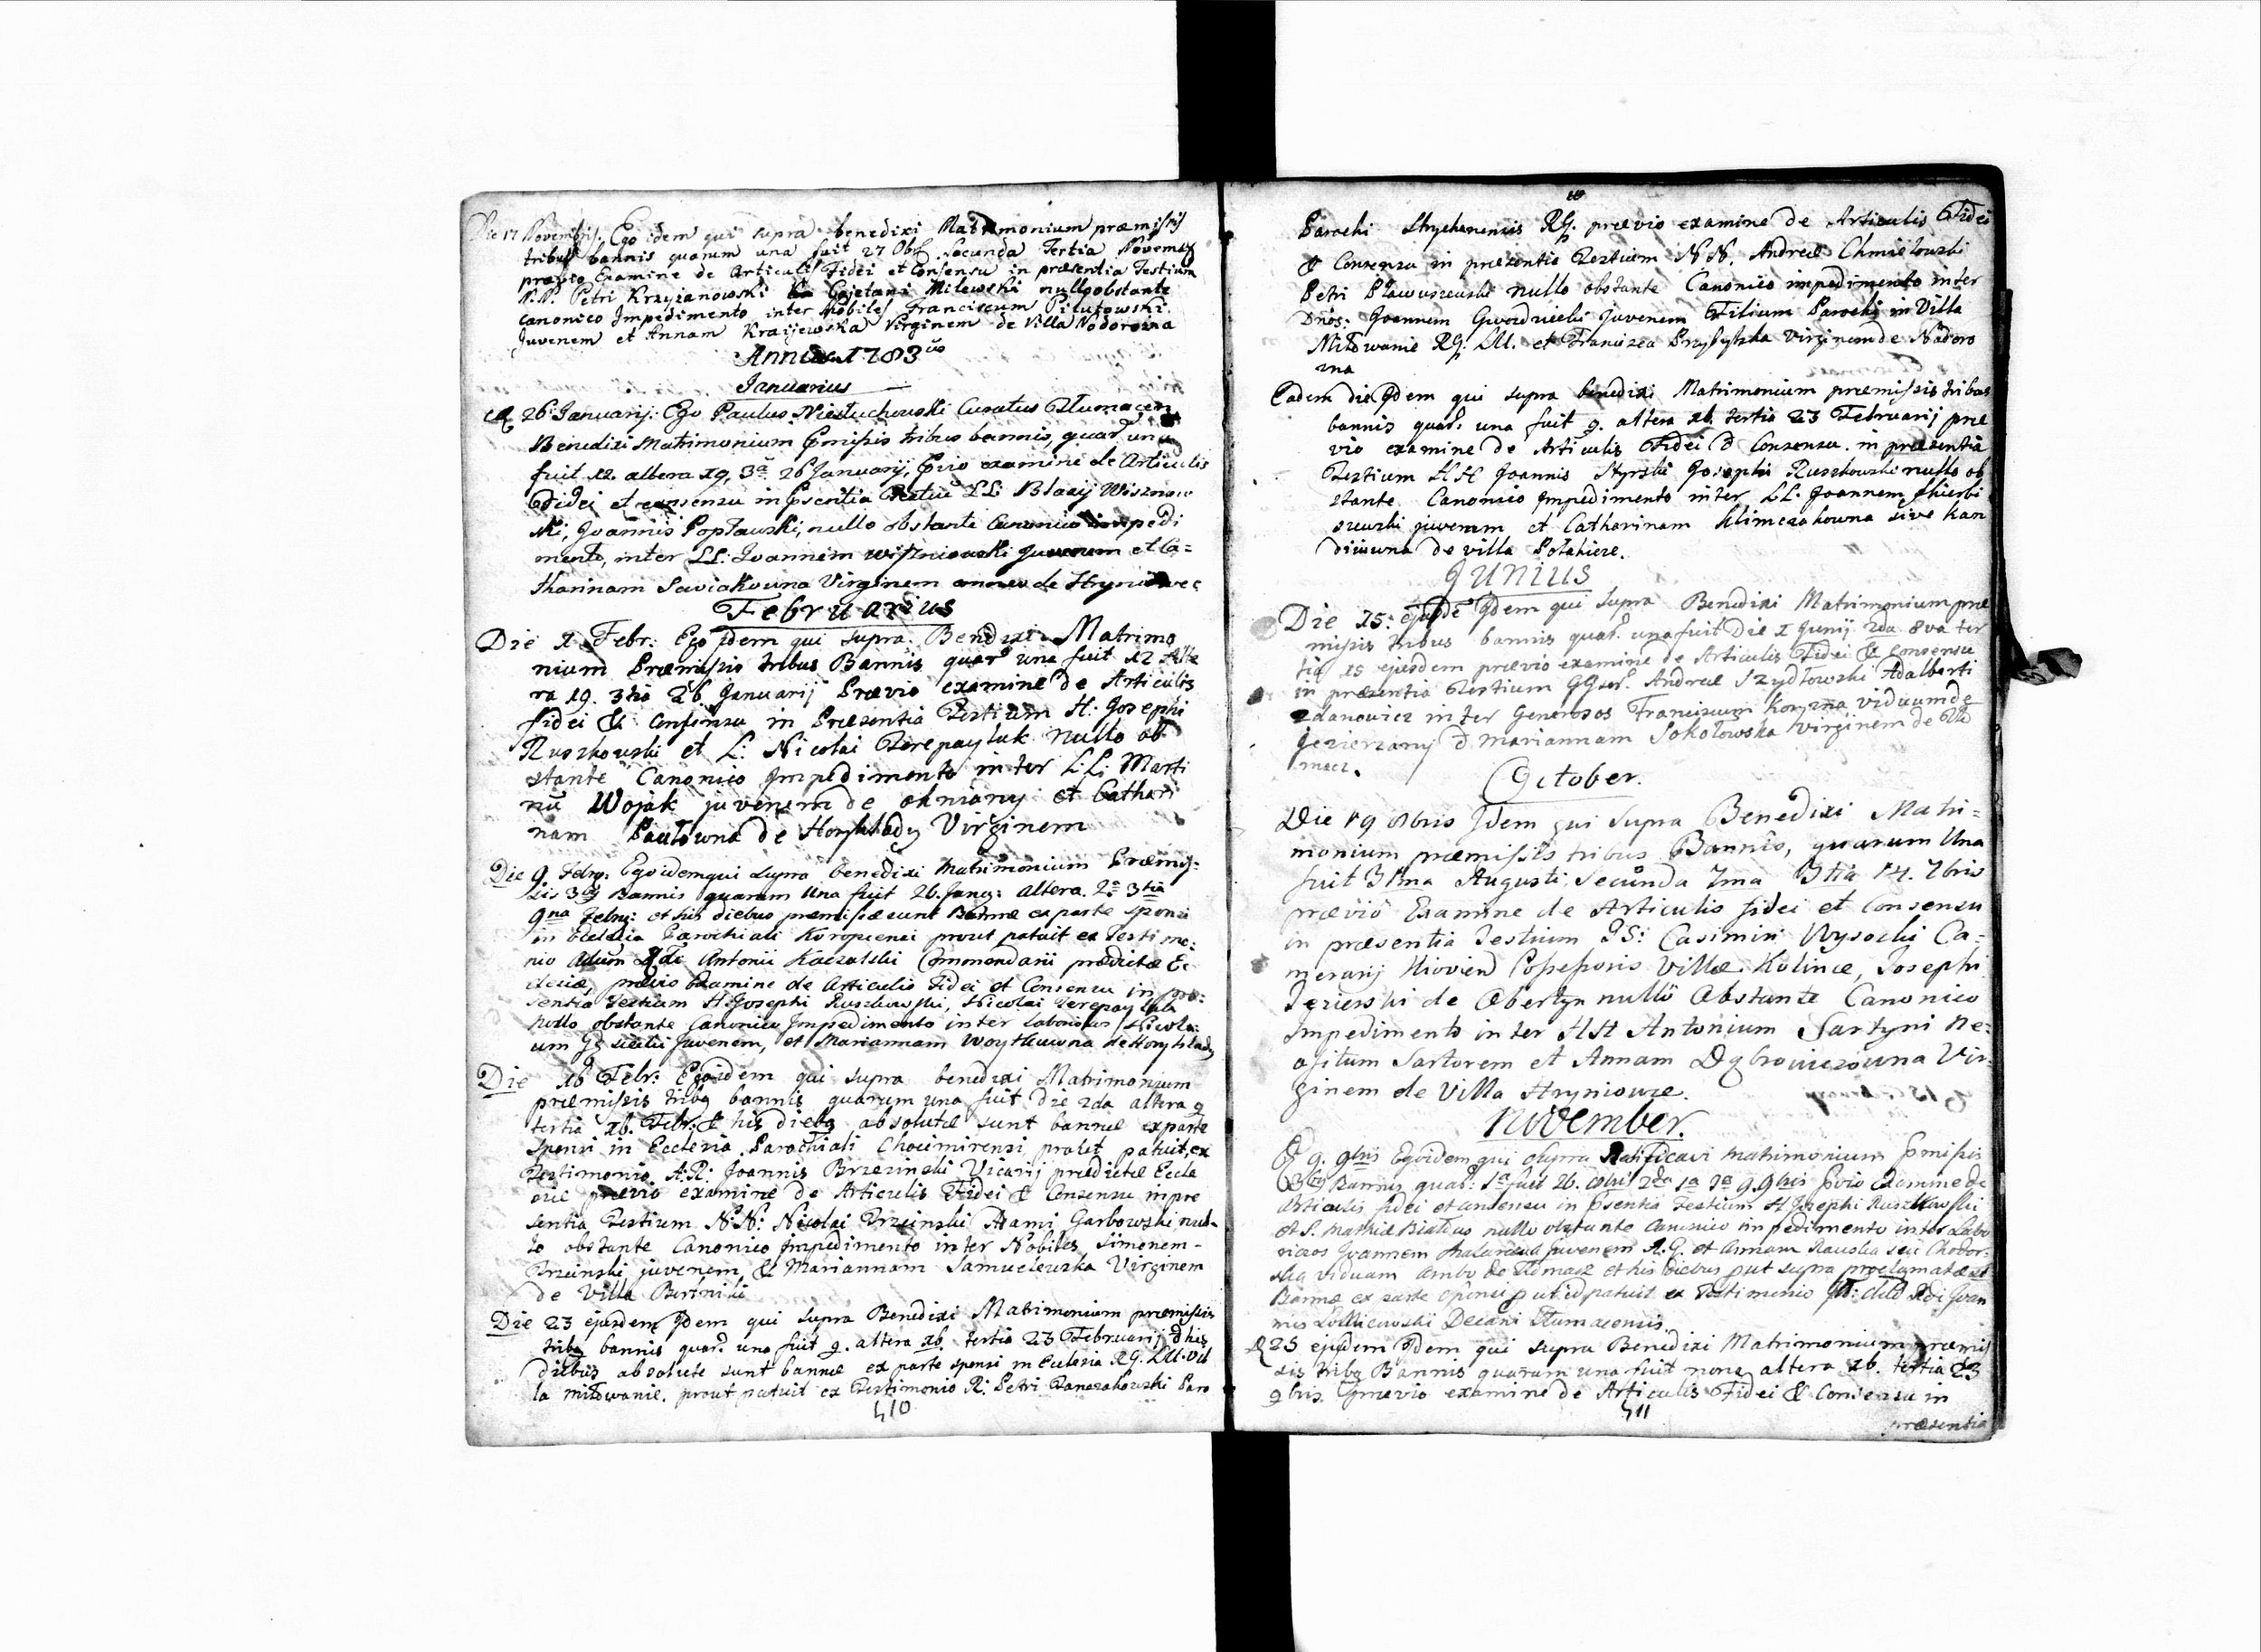 Die 17 Novembris: Ego idem qui supra benedixi Matrimonium præmissis
tribus bannis quarum una fuit 27 Obris Secunda Tertia Novemb
prævio Examine de Articulis Fidei et Consensu in præsentia Testium
N.N. Petri Krzyżanowski Cajetani Milewski nullo obstante
Canonico Impedimento inter Nobiles Franciscum Pilutowski
Juvenem et Annam Kraijewska Virginem de Villa Nodorozna
Annus 1783us
Januarius
26 Januarij: Ego Paulus Niestuchowski Curatus Tłumacen
Benedixi Matrimonium Pmissis tribus bannis, quar una
fuit 12. altera 19, 3a 26 Januarij, Pvio examine de Articulis
Fidei et consensu in Psentia Testiu LL: Blasij Wisznow
ski, Joannis Popławski, nullo obstante Canonico impedi
mento, inter LL: Joannem Wiszniowski Juvenem et Ca=
tharinam Saviakowna Virginem de Hryniowce
Februarius
Die 2 Febr: Ego Jdem qui supra. Benedixi Matrimo
nium Præmissis tribus Bannis quar una fuit 12 Alte
ra 19. 3tia 26 Januarij Prævio examine de Articulis
fidei & Consensu in Præsentia Testium H: Josephi
Ruszkowski et L: Nicolai Terepayluk nullo ob
stante Canonico Jmpedimento inter L:L: Marti
nū Wojak juvenem de okniany et Cathari
nam Pawłowna de Horyhlady Virginem
Die 9 Febr: Ego idem qui supra benedixi Matrimonium Præmis=
sis 3bus Bannis quarum Una fuit 26. Janry: altera. 2a 3tia
9na Febry: et his diebus præmissæ sunt Bannæ ex parte sponsi
in Ecclesia Parochiali Koropiensi prout patuit ex Testimo:
nio Antonii Kaczalski Commendarii prædictæ Ec
clesiæ, prævio Examine de Articulis Fidei et Consensu in præ:
sentia Testium H. Josephi Ruszkowski, Nicolai Terepayluk
Nullo obstante Canonico Jmpedimento inter Laboriosos Nicola:
um Juvenem, et Mariannam Woytkuwna de Horyhlady
Die 16 Febr: Ego idem qui supra benedixi Matrimonium
præmissis tribq bannis quarum una fuit die 2da altera 9
tertia 16. Febr: & his diebq absolutæ sunt bannæ ex parte
sponsi in Ecclesia Parochiali Chocimirensi prout patuit, ex
Testimonio A.R: Joannis Brzezinski Vicarij prædictæ Eccle
siæ prævio examine de Articulis Fidei & Consensu inpre
sentia Testium N:N: Nicolai Brzezinski Adami Garbowski nul-
lo obstante Canonico Jmpedimento inter Nobiles Simonem-
Brzezinski juvenem & Mariannam Samuelewska Virginem
de Villa Bertniki
Die 23 ejusdem Jdem qui supra Benedixi Matrimonium præmissis
tribq bannis quar. una fuit 9. altera 16. tertia 23 Februarij & his
diebus absolutæ sunt bannæ ex parte sponsi in Ecclesia RG. LM. Vil
la Miłowanie. prout patuit ex Testimonio R: Petri Tanczakowski Paro
410
Parochi Strychanensis RG. prævio examine de Articulis Fidei
& Consensu in præsentia Testium N.N. Andreæ Chmielowski
Petri Pławuszewski nullo obstante Canonico impedimento inter
Dnos: Joannem Gwozdziecki juvenem Filium Parochi in Villa
Miłowanie RG: LM. et Francisca Przybylska Virginem de Nadoro
zna
Eadem die Jdem qui supra benedixi Matrimonium præmissis tribus
bannis quar. una fuit 9. altera 16. tertia 23 Februarij præ
vio examine de Articulis Fidei & Consensu. in præsentia
Testium H.H Joannis Styrski Josephi Ruszkowski nullo ob
stante Canonico Jmpedimento inter LL: Joannem
juvenem et Catharinam Klimczakowna sive kan
diuwna de villa Polahicze.
JUNIUS
Die 15: ejusde Jdem qui supra Benedixi Matrimonium præ
missis tribus bannis quar. una fuit Die 1 Junij 2da 8va ter
tia 15 ejusdem prævio examine de Articulis Fidei & Consensu
in præsentia Testium GGsor. Andreæ Szydłowski Adalberti
Zdanowicz inter Generosos Franciscum Korzma viduum de
Jezierzany & Mariannam Sokołowska Virginem de Tłu
macz.
October.
Die 19 8bris Jdem qui supra Benedixi Matri=
monium præmissis tribus Bannis, quarum Una
fuit 31ma Augusti, Secunda 7ma 3tia 14. 7bris
prævio Examine de Articulis fidei et Consensu
in præsentia Testium PS: Casimiri Wysocki Ca=
merarij Kiovien Possessoris Villæ Kolince, Josephi
Jezierski de Obertyn nullo Obstante Canonico
Impedimento inter HH Antonium Sartyni Ne:
ofitum Sartorem et Annam Dąbrowiczowna Vir=
ginem de Villa Hryniowze.
November.
D 9. 9bris Ego idem qui supra Ratificavi Matrimonium Pmissis
3bus Bannis quar: 1a fuit 26. 8bris 2da 1a 3a 9. 9bris Pvio Examine de
Articulis fidei et consensu in Psentia Testium H Josephi Ruszkowski
et S. Mathiæ Białous nullo obstante Canonico impedimento inter Labo
riosos Joannem juvenem R.G. et Annam Rauska seu Chodor:
ska Viduam ambo de Tłomacz et his diebus put supra proclamatæ st
Bannæ ex parte sponsi put id patuit ex Testimonio Joan
nis Decani Tłumacensis.
D 23 ejusdem Jdem qui supra Benedixi Matrimonium præmis
sis tribq Bannis quarum una fuit nona altera 16. tertia 23
9bris. Prævio examine de Articulis Fidei & Consensu in
411
præsentia